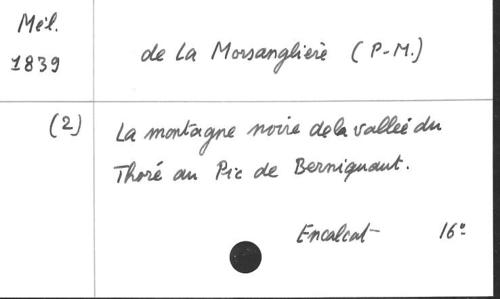 Mél.
1839
de La Morsanglière (P-M.)
(2)
La montagne noire de la vallée du
Thoré au Pic de Berniquaut.
Encalcat 16º